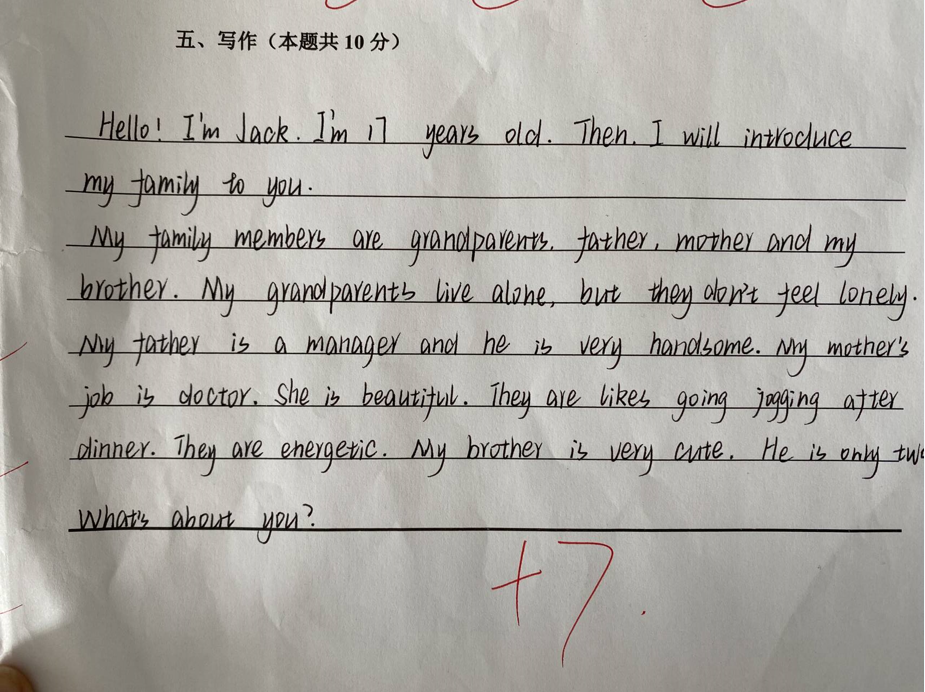 五、写作（本题共 10 分）
Hello! I'm Jack. I'm 17 years old. Then. I will introduce
my family to you.
My family members are grandparents, father, mother and my
brother. My grandparents live alone, but they don't feel lonely.
My father is a manager and he is very handsome. My mother's
job is doctor. She is beautiful. They are likes going jogging after
dinner. They are energetic. My brother is very cute. He is only
What's about you?
+7.